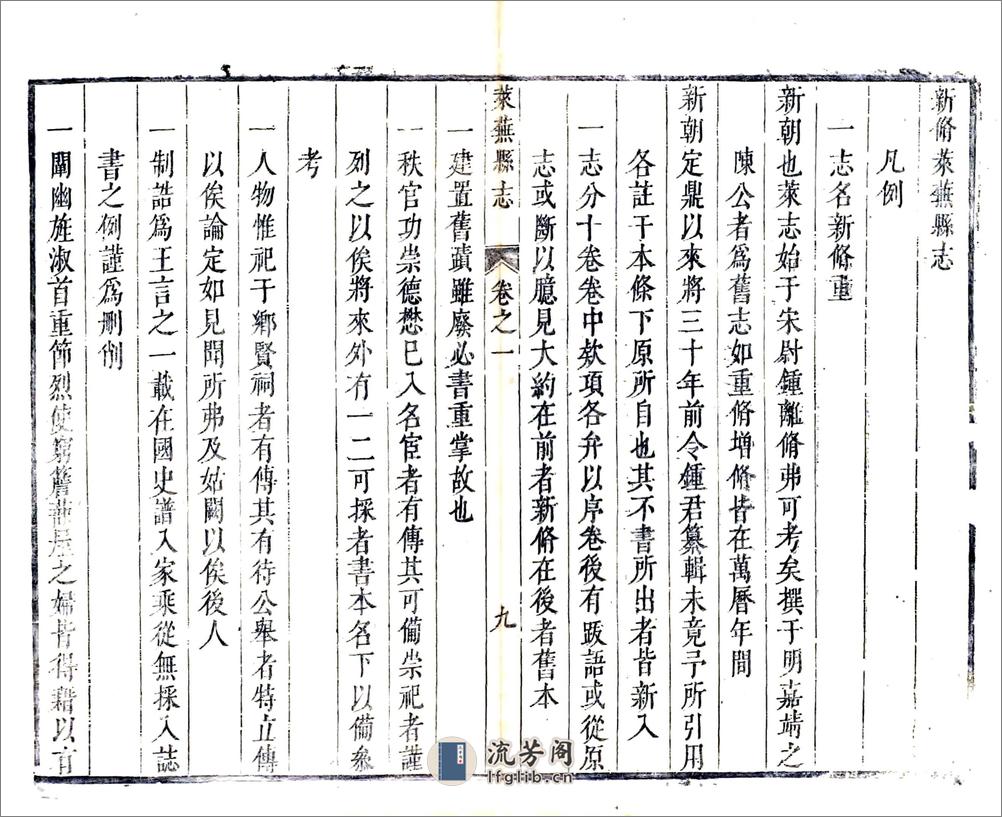 新脩萊蕪縣志
凡例
一志名新脩重
新朝也萊志始于宋尉鍾離脩弗可考矣撰于明嘉靖之
陳公者爲舊志如重脩增脩皆在萬曆年間
新朝定鼎以來將三十年前令鍾君纂輯未竟予所引用
各註于本條下原所自也其不書所出者皆新入
一志分十卷卷中欵項各弁以序卷後有跋語或從原
志或斷以臆見大約在前者新脩在後者舊本
萊蕪縣志 卷之一 九
一建置舊蹟雖廢必書重掌故也
一秩官功崇德懋已入名宦者有傳其可備崇祀者謹
列之以俟將來外有一二可採者書本名下以備叅
考
一人物惟祀于鄉賢祠者有傳其有待公舉者特立傳
以俟論定如見聞所弗及姑闕以俟後人
一制誥爲王言之一載在國史譜入家乘從無採入誌
書之例謹爲刪削
一闡幽旌淑首重節烈使窮簷蔀屋之婦皆得藉以有
流芳阁
lfglib.cn